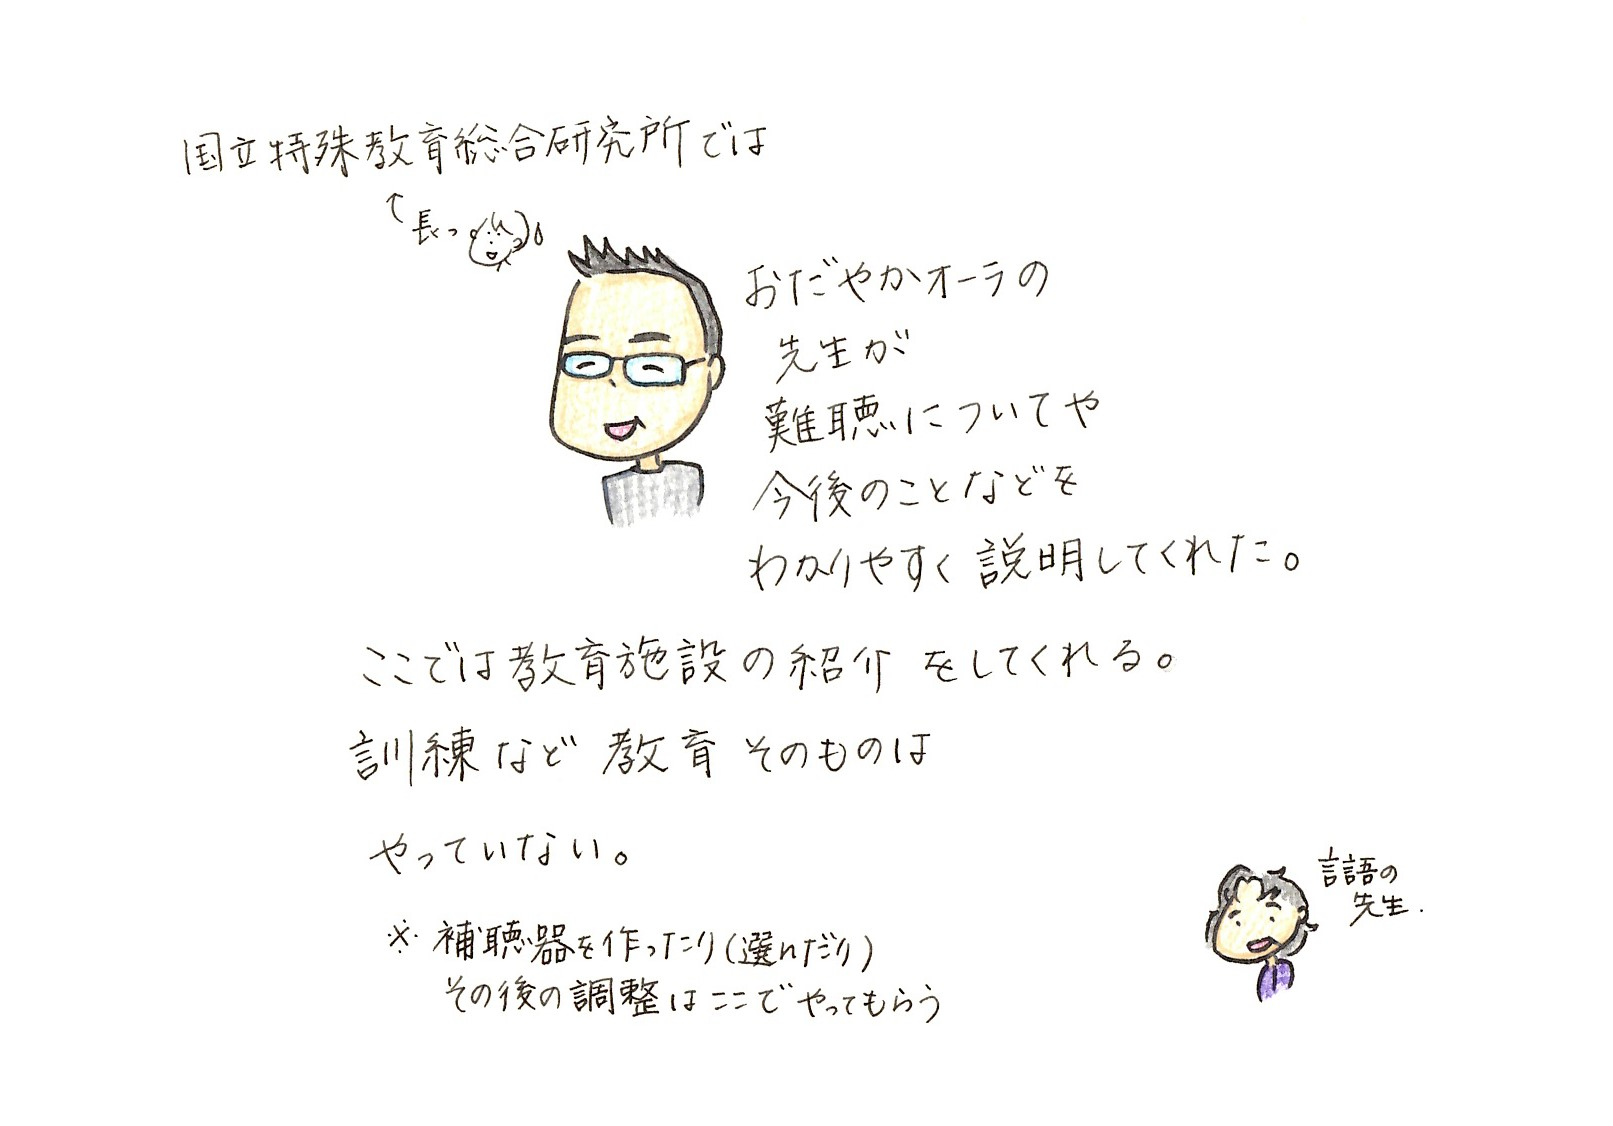 国立特殊教育総合研究所では
↑長っ
おだやかオーラの
先生が
難聴についてや
今後のことなどを
わかりやすく説明してくれた。
ここでは教育施設の紹介をしてくれる。
訓練など教育そのものは
やっていない。
言語の
先生.
※補聴器を作ったり(選んだり)
その後の調整はここでやってもらう